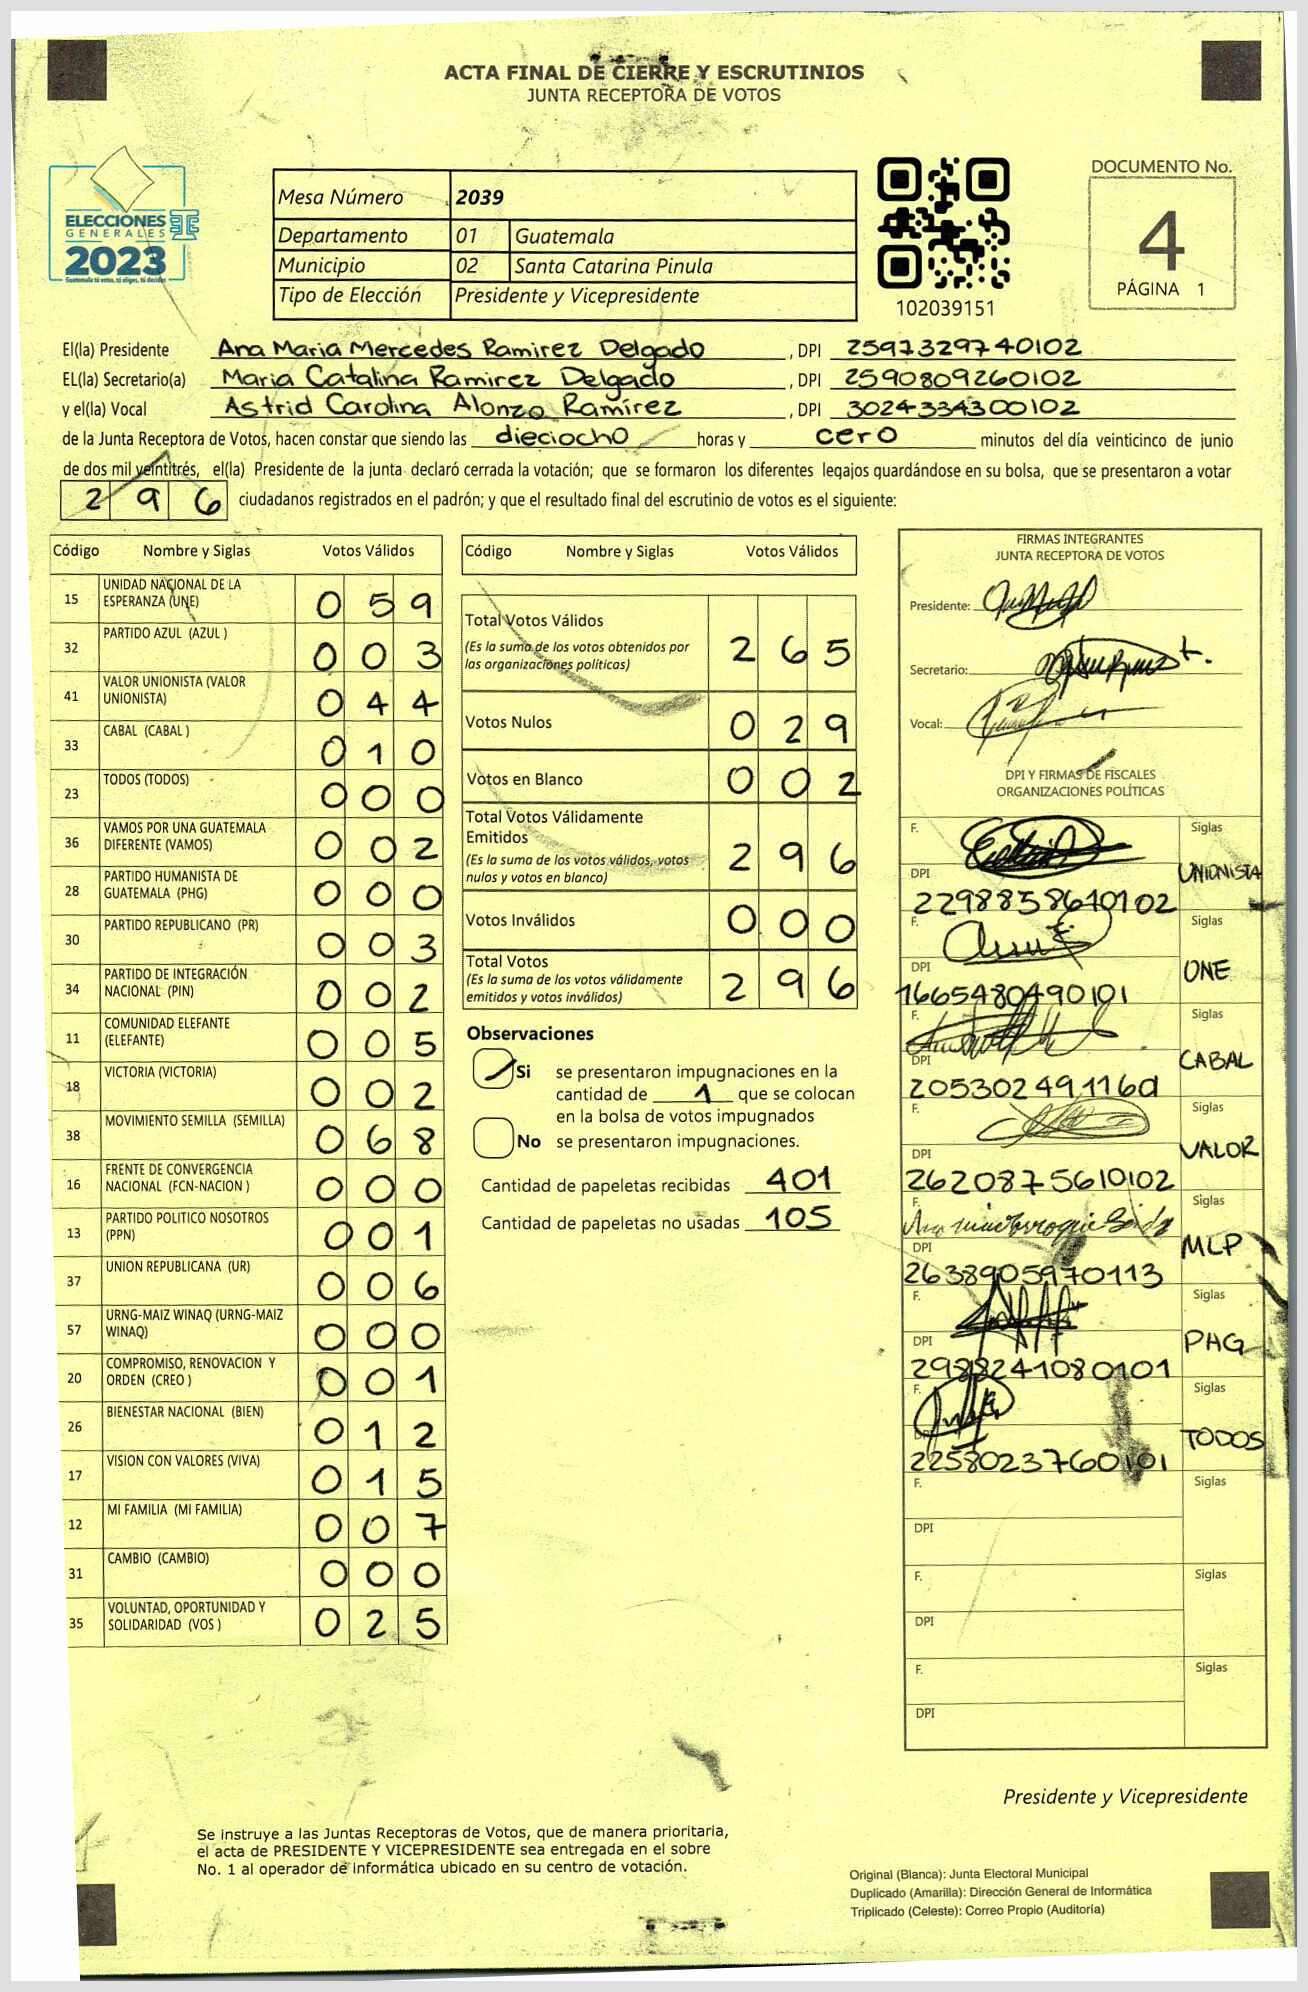 ACTA FINAL DE CIERRE Y ESCRUTINIOS
JUNTA RECEPTORA DE VOTOS
ELECCIONES
GENERALES
2023
Guatemala tú votas, tú eliges, tú decides
Mesa Número 2039
Departamento 01 Guatemala
Municipio 02 Santa Catarina Pinula
Tipo de Elección Presidente y Vicepresidente
102039151
DOCUMENTO No.
4
PÁGINA 1
El(la) Presidente Ana Maria Mercedes Ramirez Delgado , DPI 2597329740102
EL(la) Secretario(a) Maria Catalina Ramirez Delgado , DPI 2590809260102
y el(la) Vocal Astrid Carolina Alonzo Ramírez , DPI 3024334300102
de la Junta Receptora de Votos, hacen constar que siendo las dieciocho horas y cero minutos del día veinticinco de junio
de dos mil veintitrés, el(la) Presidente de la junta declaró cerrada la votación; que se formaron los diferentes legajos guardándose en su bolsa, que se presentaron a votar
296 ciudadanos registrados en el padrón; y que el resultado final del escrutinio de votos es el siguiente:
Código Nombre y Siglas Votos Válidos
15 UNIDAD NACIONAL DE LA ESPERANZA (UNE) 059
32 PARTIDO AZUL (AZUL ) 003
41 VALOR UNIONISTA (VALOR UNIONISTA) 044
33 CABAL (CABAL ) 010
23 TODOS (TODOS) 000
36 VAMOS POR UNA GUATEMALA DIFERENTE (VAMOS) 002
28 PARTIDO HUMANISTA DE GUATEMALA (PHG) 000
30 PARTIDO REPUBLICANO (PR) 003
34 PARTIDO DE INTEGRACIÓN NACIONAL (PIN) 002
11 COMUNIDAD ELEFANTE (ELEFANTE) 005
18 VICTORIA (VICTORIA) 002
38 MOVIMIENTO SEMILLA (SEMILLA) 068
16 FRENTE DE CONVERGENCIA NACIONAL (FCN-NACION ) 000
13 PARTIDO POLITICO NOSOTROS (PPN) 001
37 UNION REPUBLICANA (UR) 006
57 URNG-MAIZ WINAQ (URNG-MAIZ WINAQ) 000
20 COMPROMISO, RENOVACION Y ORDEN (CREO ) 001
26 BIENESTAR NACIONAL (BIEN) 012
17 VISION CON VALORES (VIVA) 015
12 MI FAMILIA (MI FAMILIA) 007
31 CAMBIO (CAMBIO) 000
35 VOLUNTAD, OPORTUNIDAD Y SOLIDARIDAD (VOS ) 025
Código Nombre y Siglas Votos Válidos
Total Votos Válidos
(Es la suma de los votos obtenidos por
las organizaciones políticas) 265
Votos Nulos 029
Votos en Blanco 002
Total Votos Válidamente
Emitidos
(Es la suma de los votos válidos, votos
nulos y votos en blanco) 296
Votos Inválidos 000
Total Votos
(Es la suma de los votos válidamente
emitidos y votos inválidos) 296
Observaciones
Si se presentaron impugnaciones en la
cantidad de 1 que se colocan
en la bolsa de votos impugnados
No se presentaron impugnaciones.
Cantidad de papeletas recibidas 401
Cantidad de papeletas no usadas 105
FIRMAS INTEGRANTES
JUNTA RECEPTORA DE VOTOS
Presidente:
Secretario:
Vocal:
DPI Y FIRMAS DE FISCALES
ORGANIZACIONES POLÍTICAS
F. Siglas
DPI 2298858610102 UNIONISTA
F. Siglas
DPI 1665480490101 UNE
F. Siglas
DPI CABAL
F. Siglas
DPI 2620875610102 VALOR
F. Siglas
DPI 2638905970113 MLP
F. Siglas
DPI 2988241080101 PHG
F. Siglas
DPI 2258023760101 TODOS
F. Siglas
DPI
F. Siglas
DPI
F. Siglas
DPI
Presidente y Vicepresidente
Se instruye a las Juntas Receptoras de Votos, que de manera prioritaria,
el acta de PRESIDENTE Y VICEPRESIDENTE sea entregada en el sobre
No. 1 al operador de informática ubicado en su centro de votación.
Original (Blanca): Junta Electoral Municipal
Duplicado (Amarilla): Dirección General de Informática
Triplicado (Celeste): Correo Propio (Auditoría)